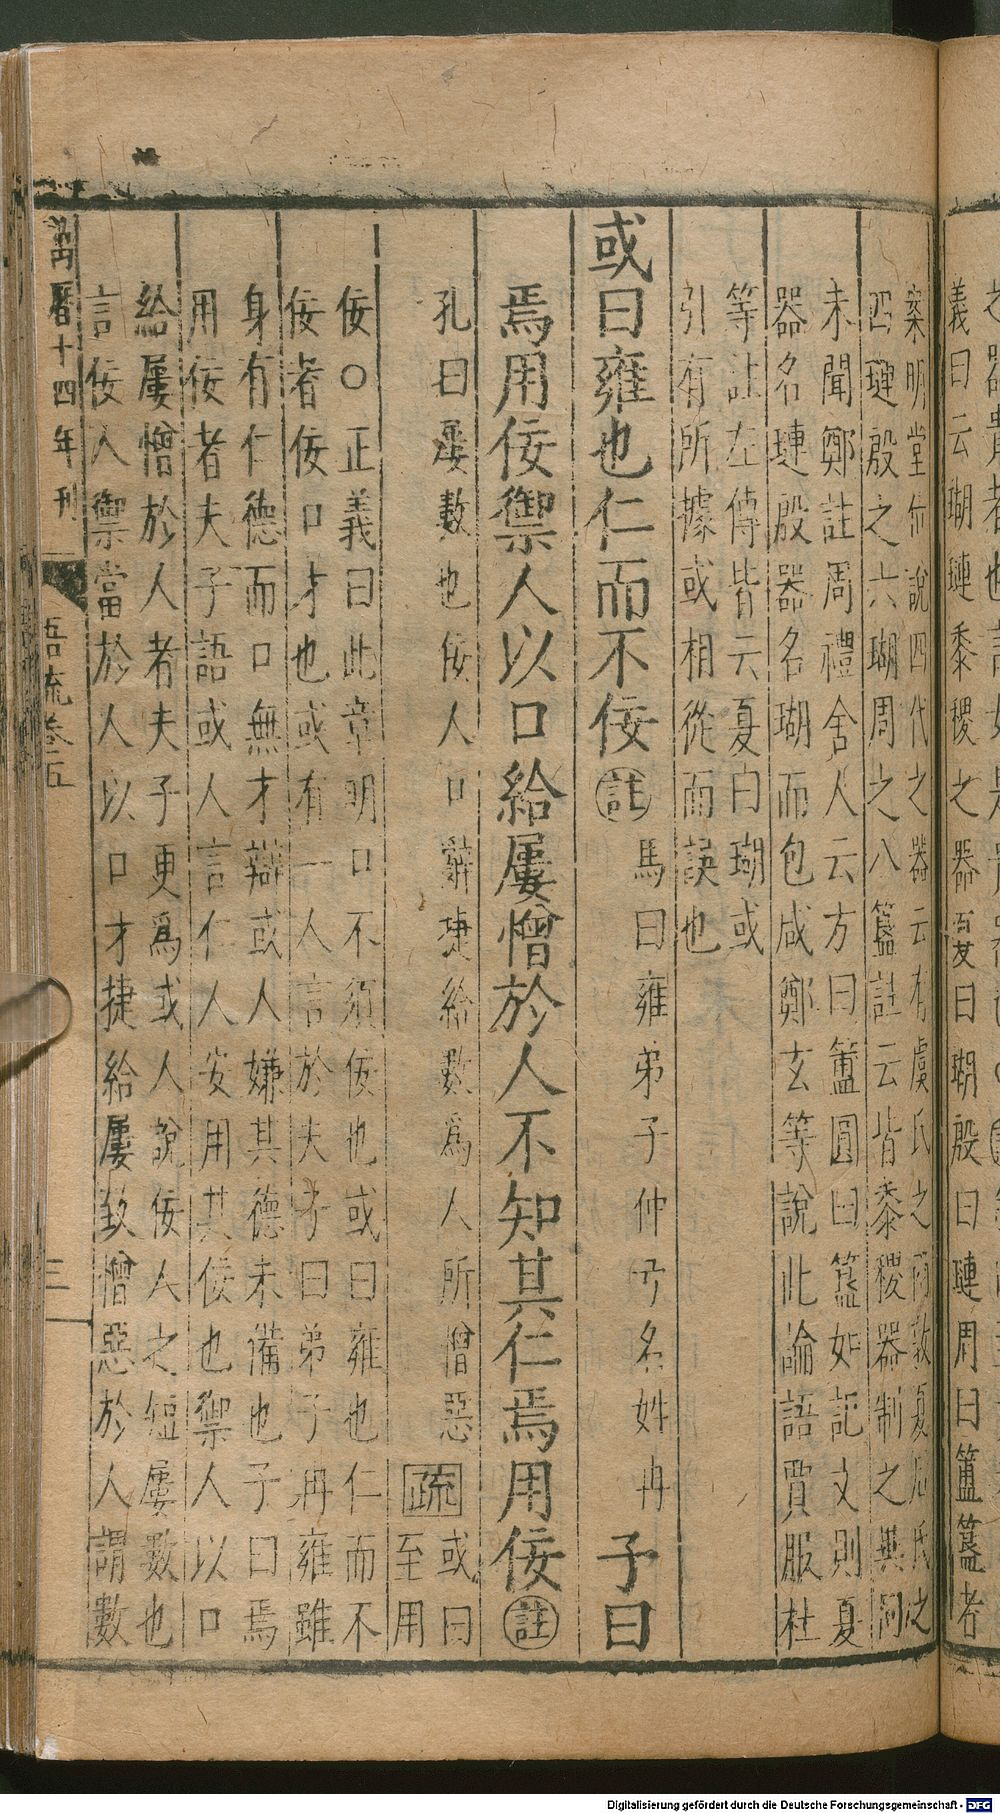 義曰云瑚璉黍稷之器夏曰瑚殷曰璉周曰簠簋者
案明堂位說四代之器云有虞氏之兩敦夏后氏之
四璉殷之六瑚周之八簋註云皆黍稷器制之異同
未聞鄭註周禮舍人云方曰簠圓曰簋如記文則夏
器名璉殷器名瑚而包咸鄭玄等說此論語賈服杜
等註左傳皆云夏曰瑚或
引有所據或相從而誤也
或曰雍也仁而不佞註馬曰雍弟子仲弓名姓冉子曰
焉用佞禦人以口給屢憎於人不知其仁焉用佞註
孔曰屢數也佞人口辭捷給數為人所憎惡疏或曰
至用
佞○正義曰此章明口不須佞也或曰雍也仁而不
佞者佞口才也或有一人言於夫子曰弟子冉雍雖
身有仁德而口無才辯或人嫌其德未備也子曰焉
用佞者夫子語或人言仁人安用其佞也禦人以口
給屢憎於人者夫子更為或人說佞人之短屢數也
言佞人禦當於人以口才捷給屢致憎惡於人謂數
萬曆十四年刊
語疏卷五
三
Digitalisierung gefördert durch die Deutsche Forschungsgemeinschaft - DFG